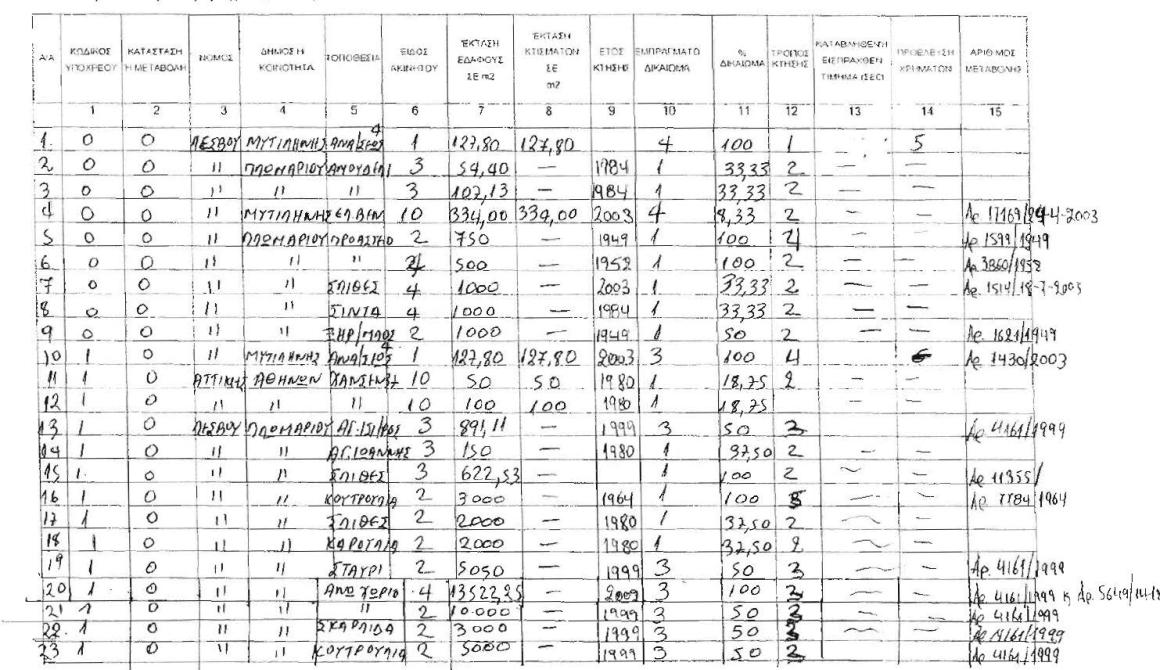 Α/Α ΚΩΔΙΚΟΣ ΥΠΟΧΡΕΟΥ ΚΑΤΑΣΤΑΣΗ Ή ΜΕΤΑΒΟΛΗ ΝΟΜΟΣ ΔΗΜΟΣ Η ΚΟΙΝΟΤΗΤΑ ΤΟΠΟΘΕΣΙΑ ΕΙΔΟΣ ΑΚΙΝΗΤΟΥ ΕΚΤΑΣΗ ΕΔΑΦΟΥΣ ΣΕ m2 ΕΚΤΑΣΗ ΚΤΙΣΜΑΤΩΝ ΣΕ m2 ΕΤΟΣ ΚΤΗΣΗΣ ΕΜΠΡΑΓΜΑΤΟ ΔΙΚΑΙΩΜΑ % ΔΙΚΑΙΩΜΑ ΤΡΟΠΟΣ ΚΤΗΣΗΣ ΚΑΤΑΒΛΗΘΕΝ Ή ΕΙΣΠΡΑΧΘΕΝ ΤΙΜΗΜΑ (ΣΕ €) ΠΡΟΕΛΕΥΣΗ ΧΡΗΜΑΤΩΝ ΑΡΙΘΜΟΣ ΜΕΤΑΒΟΛΗΣ
1 2 3 4 5 6 7 8 9 10 11 12 13 14 15
1. 0 0 ΛΕΣΒΟΥ ΜΥΤΙΛΗΝΗΣ 1 127,80 127,80 4 100 1 — 5
2 0 0 '' ΠΛΩΜΑΡΙΟΥ ΑΜΟΥΔΕΛΙ 3 54,40 — 1984 1 33,33 2 — —
3 0 0 '' '' '' 3 107,13 — 1984 1 33,33 2 — —
4 0 0 '' ΜΥΤΙΛΗΝΗΣ ΕΛ.ΒΕΝ 10 334,00 334,00 2003 4 8,33 2 — — Αρ. 17169/24-4-2003
5 0 0 '' ΠΛΩΜΑΡΙΟΥ ΠΡΟΑΣΤΙΟ 2 750 — 1949 1 100 — — Αρ 1599/1949
6 0 0 '' '' '' 500 — 1952 1 100 2 — — Αρ. 3860/1952
7 0 0 '' '' ΣΠΙΘΕΣ 4 1000 — 2003 1 33,33 2 — — Αρ. 1514/18-7-2003
8 0 0 '' '' ΣΙΝΤΑ 4 1000 — 1984 1 33,33 2 — —
9 0 0 '' '' 2 1000 — 1949 1 50 2 — — Αρ. 1621/1949
10 1 0 '' ΜΥΤΙΛΗΝΗΣ 1 127,80 127,80 2003 3 100 4 — Αρ 1430/2003
11 1 0 ΑΤΤΙΚΗΣ ΑΘΗΝΩΝ 10 50 50 1980 1 18,75 2 — —
12 1 0 '' '' '' 10 100 100 1980 1 18,75 — —
13 1 0 ΛΕΣΒΟΥ ΠΛΩΜΑΡΙΟΥ 3 891,11 — 1999 3 50 Αρ. 4161/1999
14 1 0 '' '' ΑΓ.ΙΩΑΝΝΗΣ 3 150 — 1980 1 37,50 2 — —
15 1. 0 '' '' ΣΠΙΘΕΣ 3 622,53 1 100 2 — — Αρ 11355/
16 1 0 '' '' ΚΟΥΤΡΟΥΛΙΑ 2 3000 — 1964 1 100 — — Αρ. 7784/1964
17 1 0 '' '' ΣΠΙΘΕΣ 2 2000 — 1980 1 37,50 2 — —
18 1 0 '' '' ΚΑΡΟΥΛΙΑ 2 2000 — 1980 1 37,50 2 — —
19 1 0 '' '' ΣΤΑΥΡΙ 2 5050 — 1999 3 50 — — Αρ. 4161/1999
20 1 0 '' '' ΑΝΩ ΧΩΡΙΟ 4 13522,25 — 3 100 — — Αρ. 4161/1999 κ Αρ. 5649
21 1 0 '' '' '' 2 10.000 — 1999 3 50 — Αρ 4161/1999
22 1 0 '' '' ΣΚΑΡΛΙΔΑ 2 3000 — 1999 3 50 — — Αρ 4161/1999
23 1 0 '' '' ΚΟΥΤΡΟΥΛΙΑ 2 5000 — 1999 3 50 2 Αρ 4161/1999